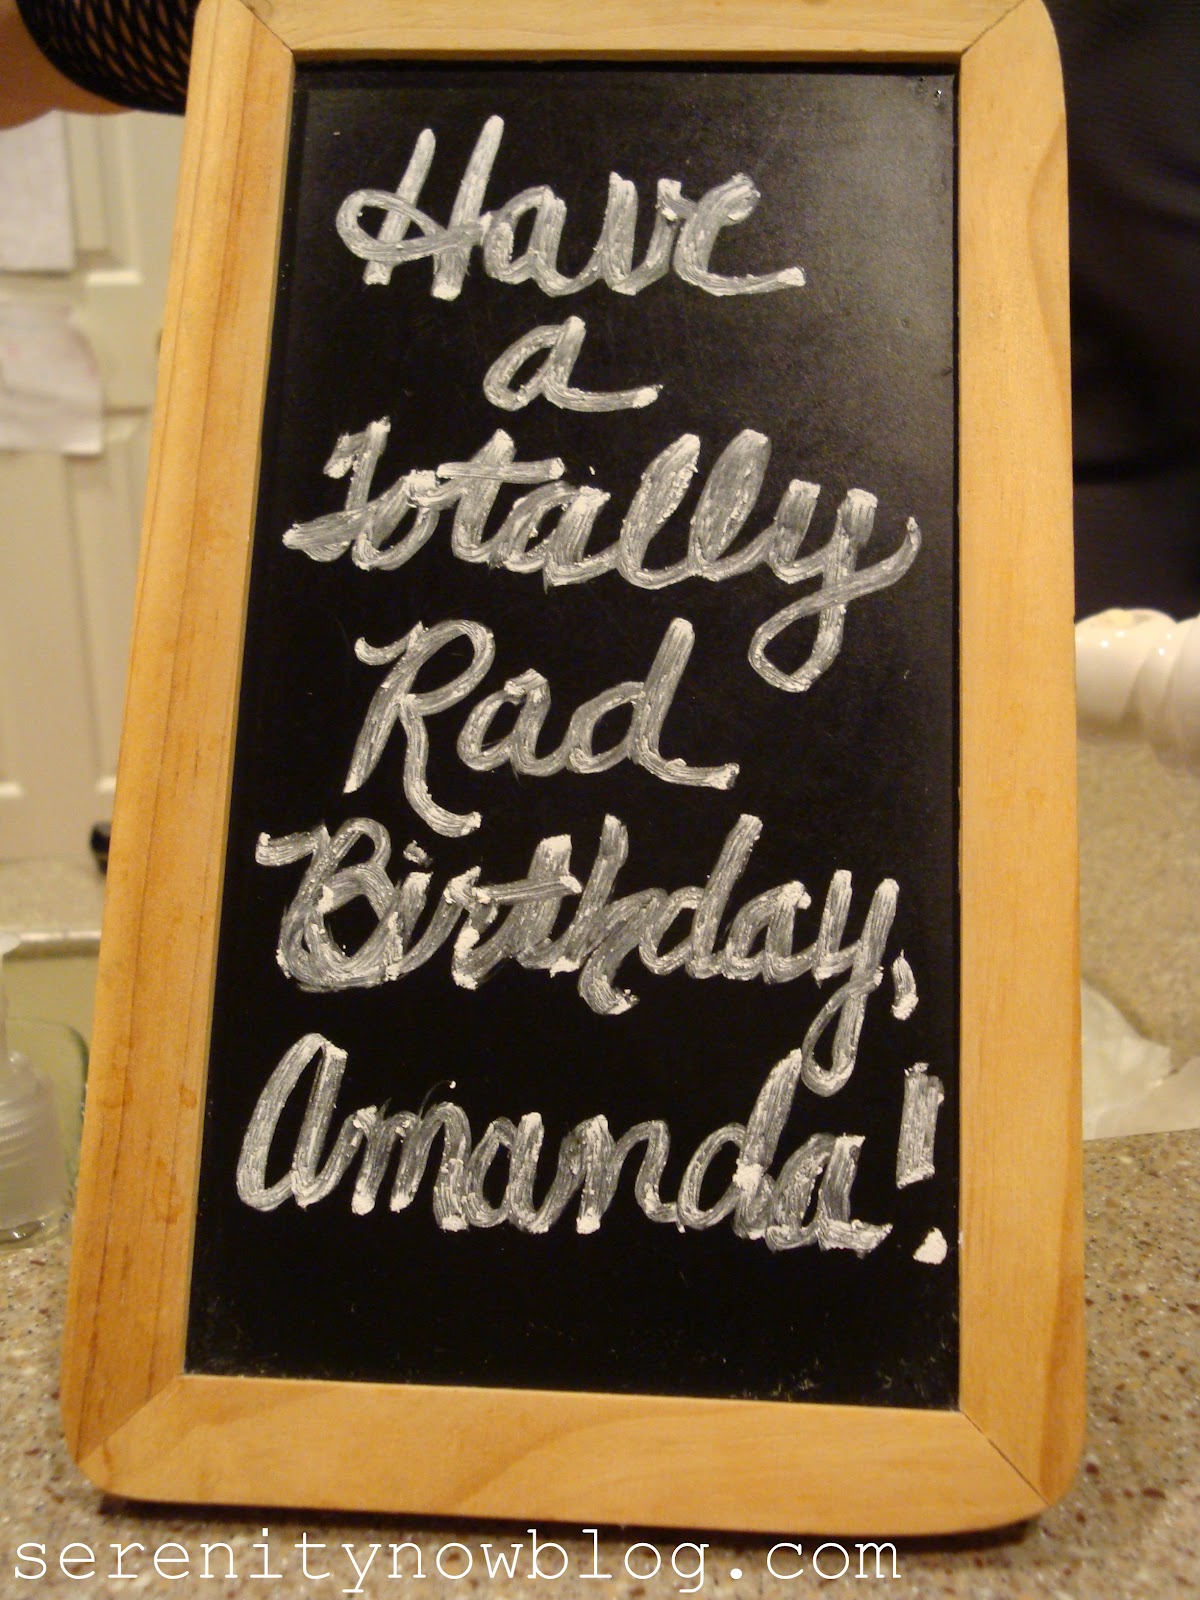 Have
a
Totally
Rad
Birthday,
Amanda!
serenitynowblog.com